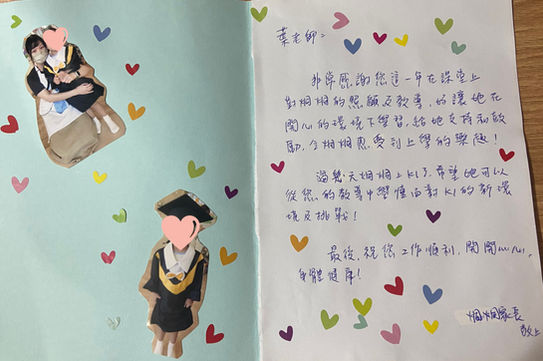 葉老師：
非常感謝您這一年在課堂上
對烱烱的照顧及教導，好讓她在
開心的環境下學習，給她支持和鼓
勵，令烱烱感受到上學的樂趣！
過幾天烱烱上K1了，希望她可以
從您的教導中學懂面對K1的新環
境及挑戰！
最後，祝您工作順利，開開心心，
身體健康！
烱烱家長
敬上